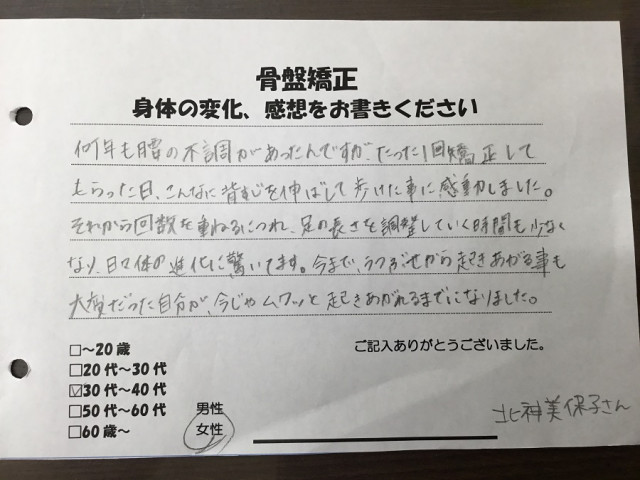 骨盤矯正
身体の変化、感想をお書きください
何年も腰の不調があったんですが、たった1回矯正して
もらった日、こんなに背すじを伸ばして歩けた事に感動しました。
それから回数を重ねるにつれ、足の長さを調整していく時間も少なく
なり、日々体の進化に驚いてます。今まで、うつぶせから起きあがる事も
大変だった自分が、今じゃムクッと起きあがれるまでになりました。
□～20歳
ご記入ありがとうございました。
□20代～30代
☑30代～40代
□50代～60代 男性
□60歳～ 女性
北神美保子さん